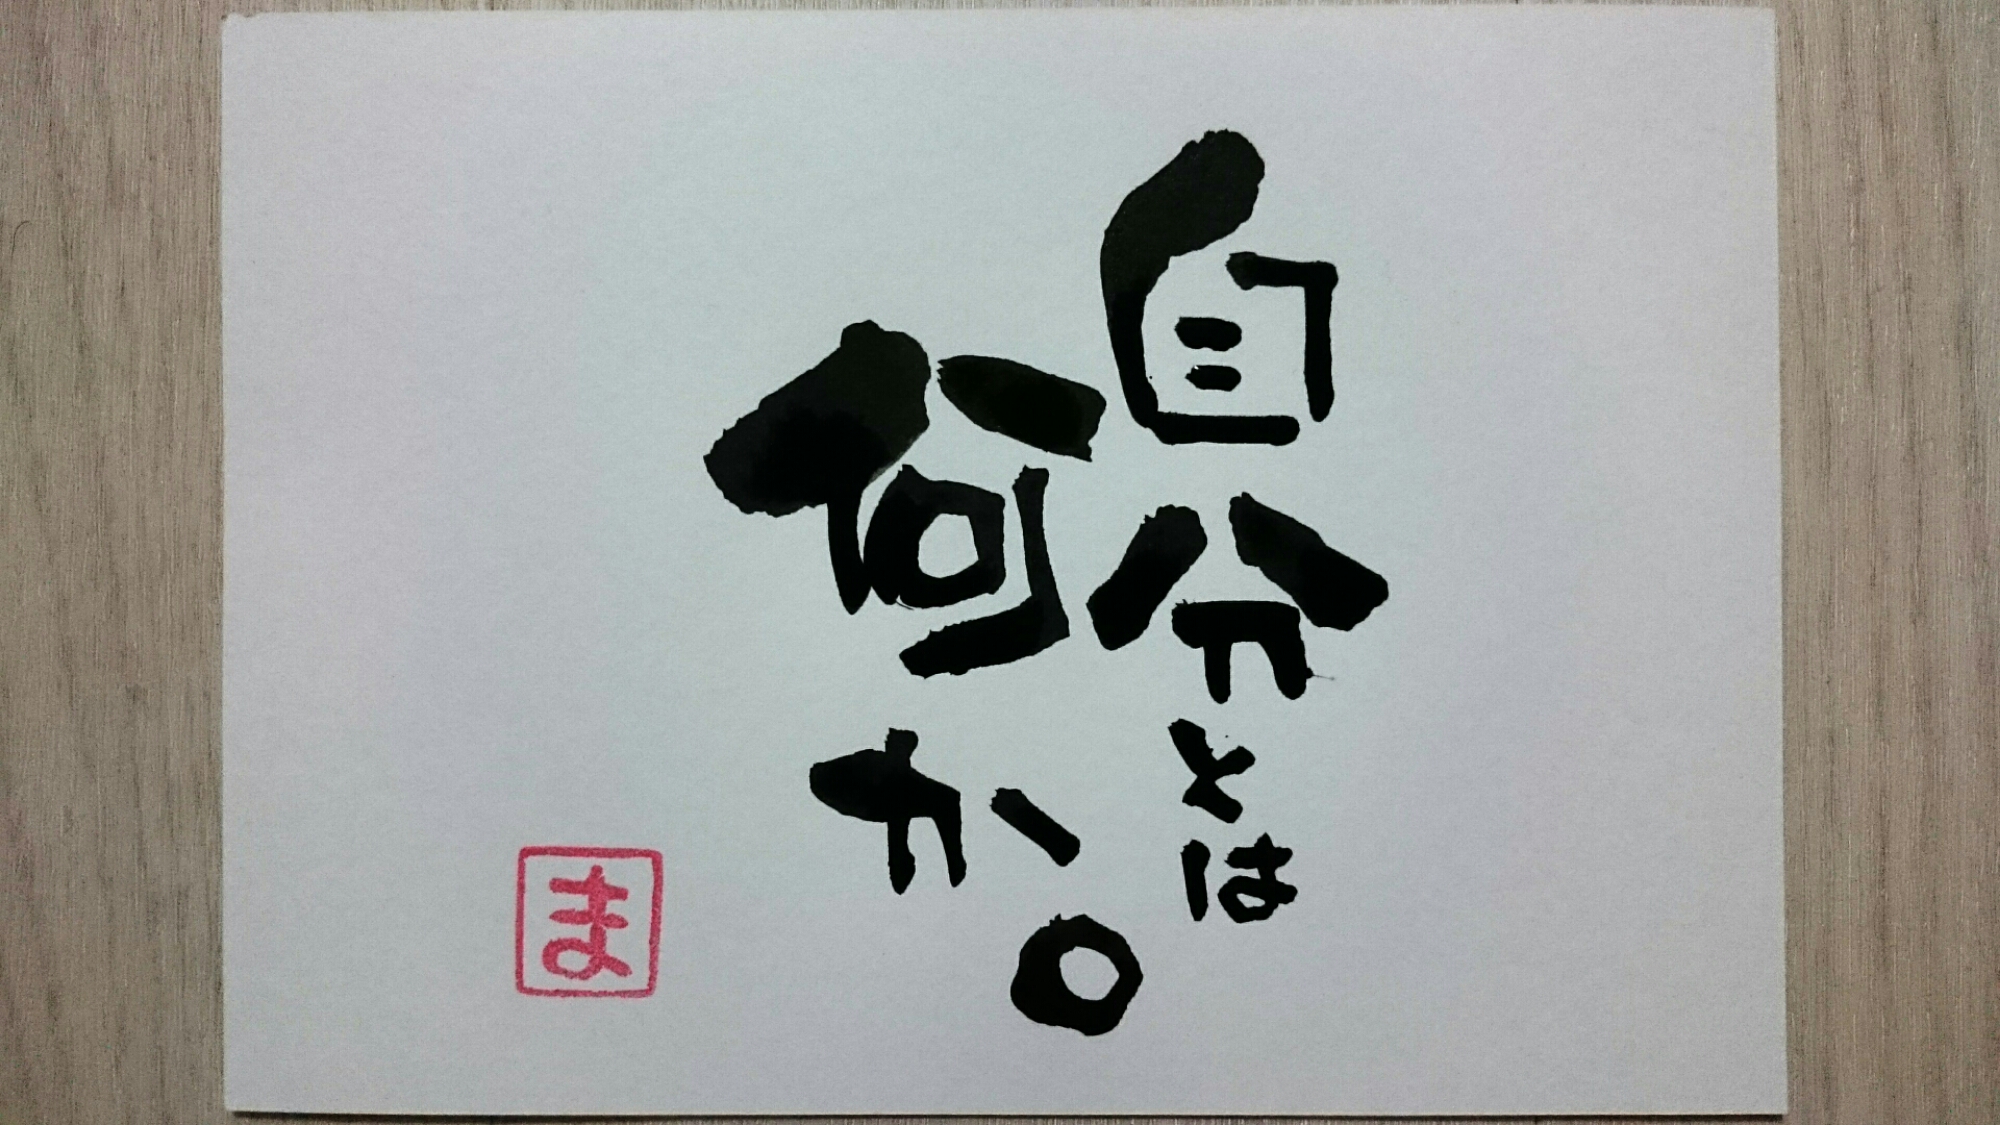 自分とは
何か。
ま